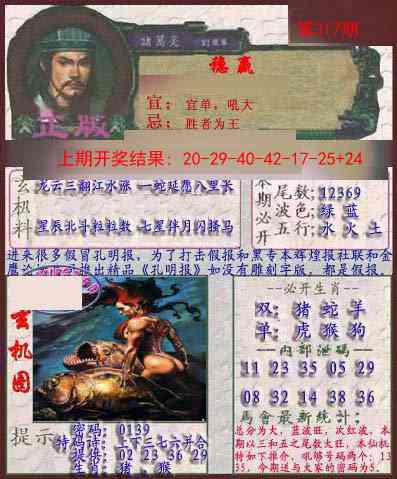 第317期
諸葛亮
稳赢
宜：宜单，吼大
忌：胜者为王
正版
上期开奖结果：20-29-40-42-17-25+24
玄机料
龙云三翻江水涨 一蛇延愿八里长
星辰北斗粒粒数 七星伴月闪骚马
本期必开
尾数：12369
波色：绿 蓝
五行：水 火 土
进来很多假冒孔明报，为了打击假报和黑专本辉煌报社联和金
推出精品《孔明报》如没有雕刻字版，都是假报。
玄机图
必开生肖
双：猪 蛇 羊
单：虎 猴 狗
内部泄码
11 23 35 05 29
08 32 14 38 36
馬會最新統計：
总分为大，蓝波旺，次红波，本
期以三和五之尾数大旺，本仙机
特如下推介，吼够号码两个：13
35，今期送与大家的密码为5.
提示
密码：0139
特码诗：上下三七六开合
提供：02 23 36 29
生肖：猪，猴